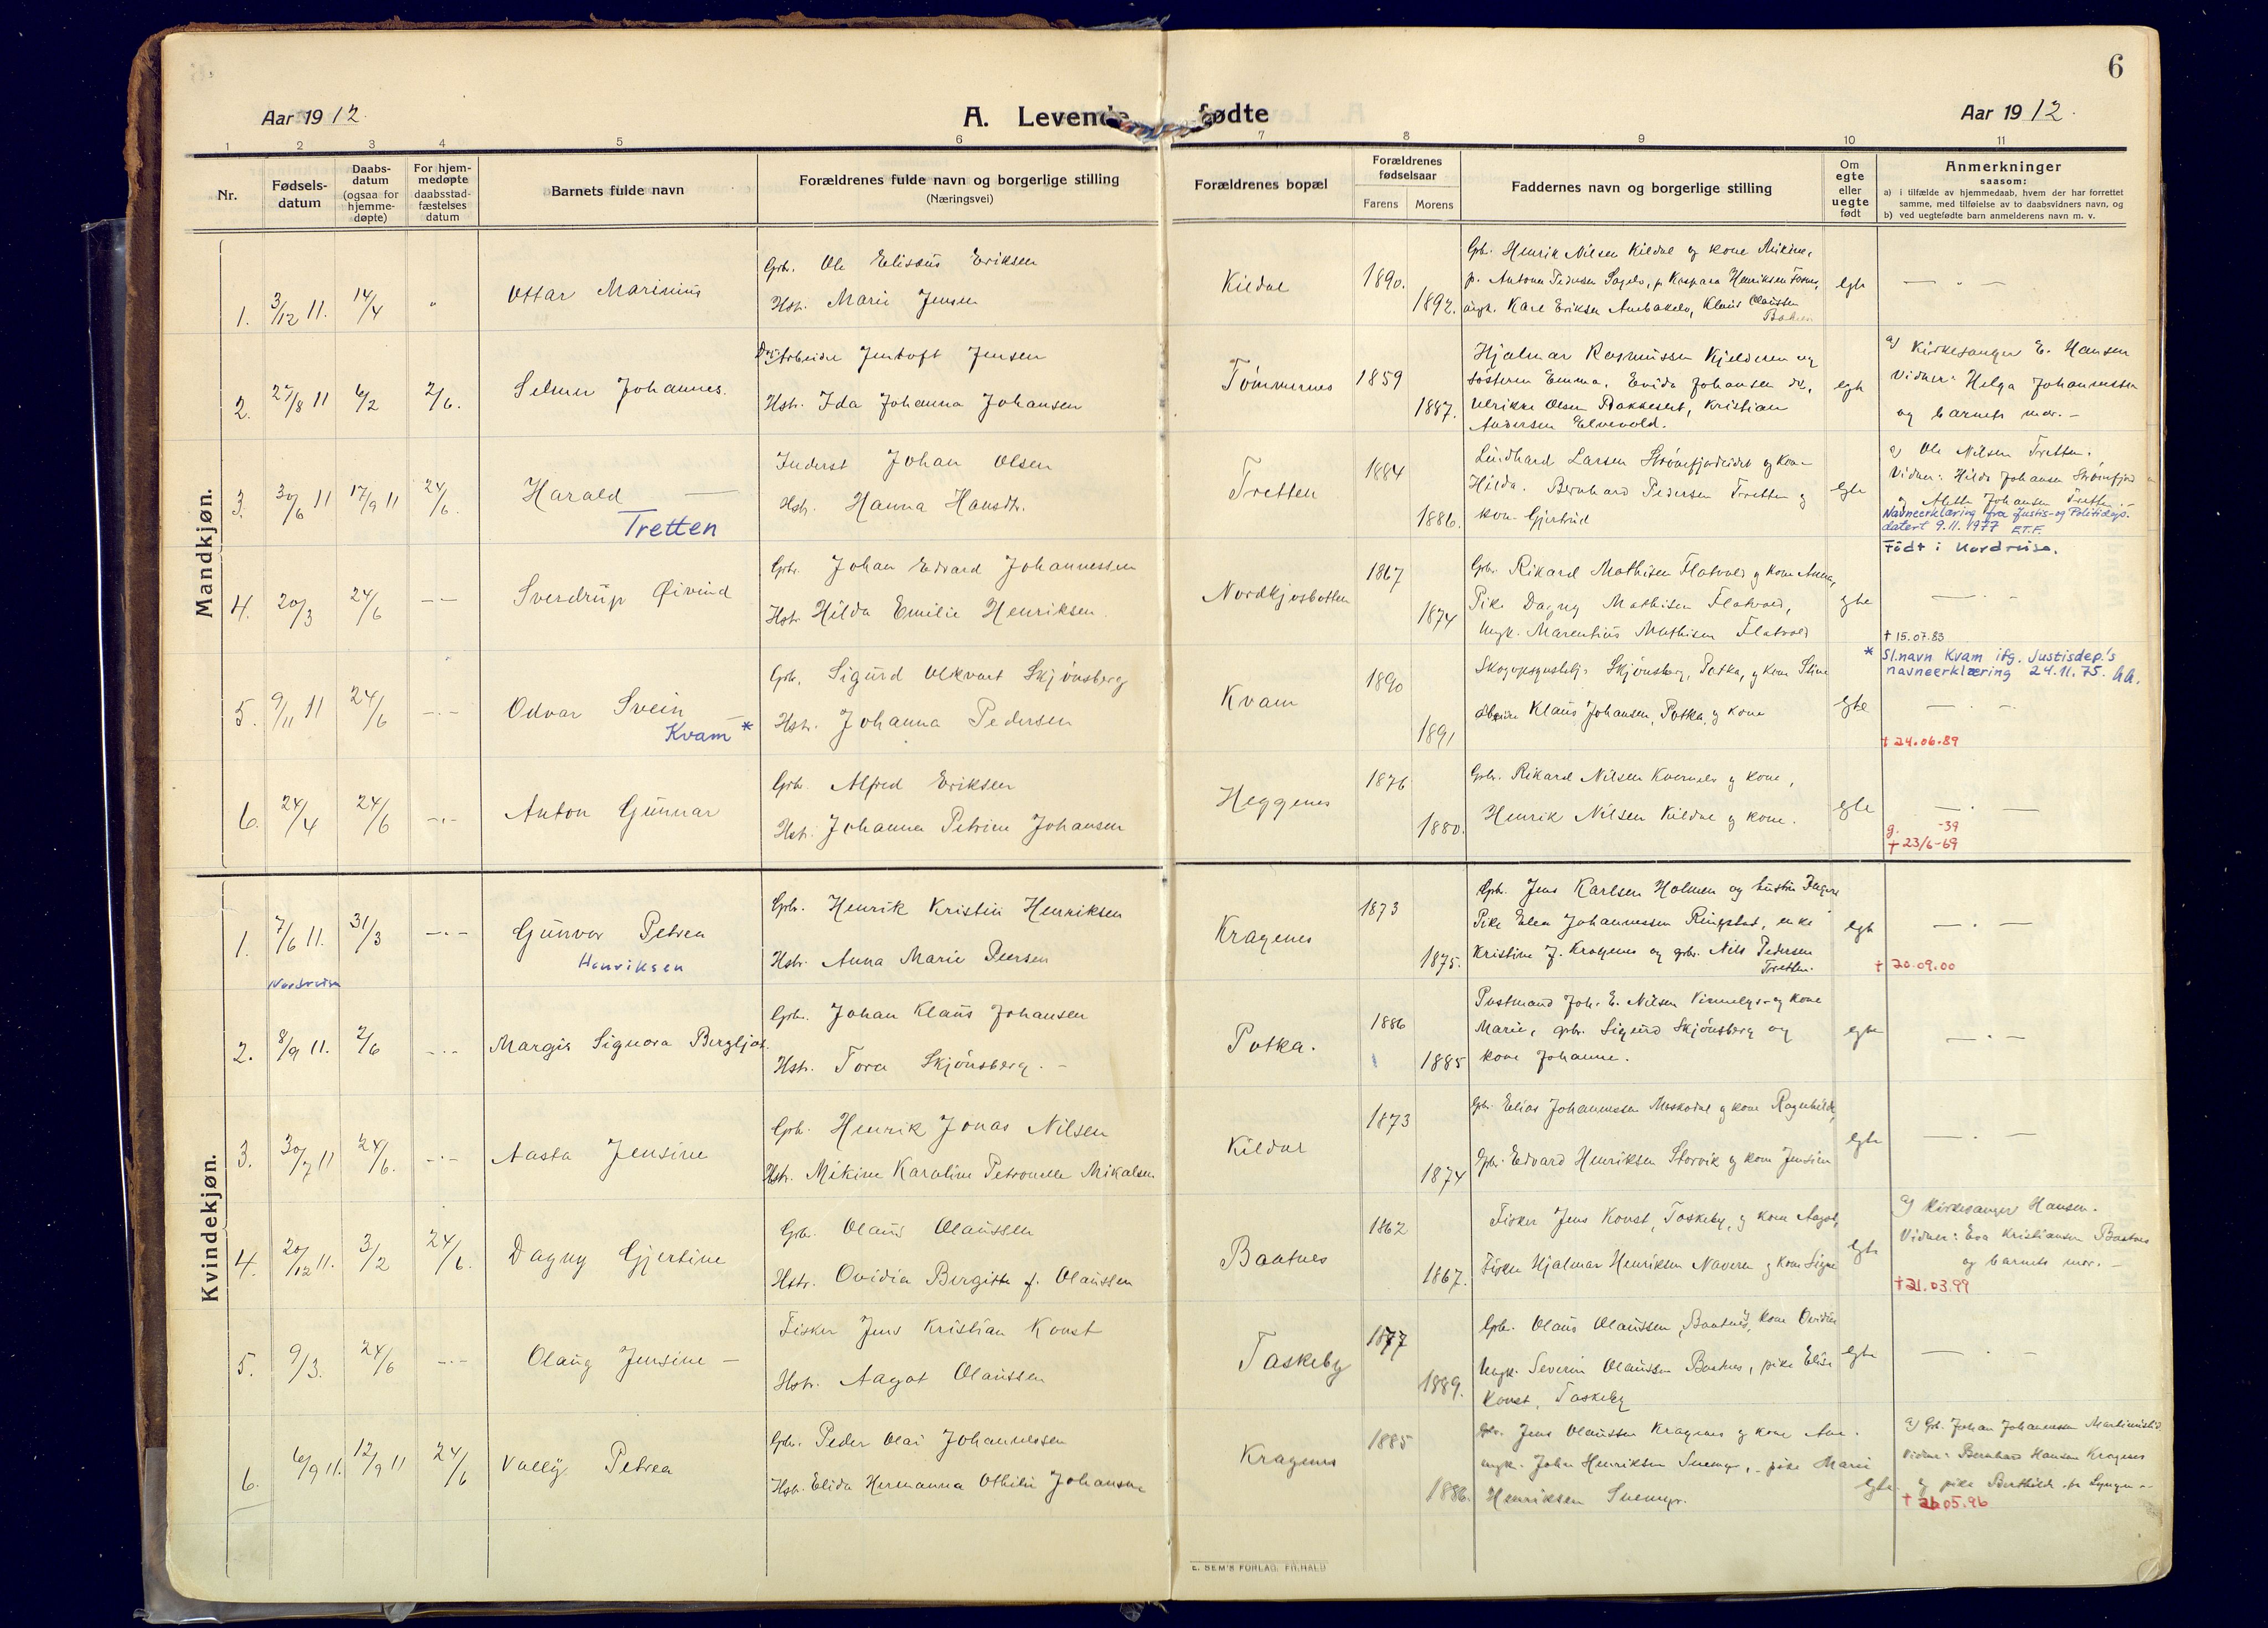 6
Aar 1912.
A. Levende fødte
Aar 1912.
1 2 3 4 5 6 7 8 9 10 11
Nr.
Fødsels-
datum
Daabs-
datum
(ogsaa for
hjemme-
døpte)
For hjem-
medøpte
daabsstad-
fæstelses
datum
Barnets fulde navn
Forældrenes fulde navn og borgerlige stilling
(Næringsvei)
Forældrenes bopæl
Forældrenes
fødselsaar
Farens Morens
Faddernes navn og borgerlige stilling
Om
egte
eller
uegte
født
Anmerkninger
saasom:
a) i tilfælde av hjemmedaab, hvem der har forrettet
samme, med tilføielse av to daabsvidners navn, og
b) ved uegtefødte barn anmelderens navn m. v.
Mandkjøn.
1. 3/12 11. 14/4 "
Ottar Marinius
Grb. Ole Elisæus Eriksen
Hstr. Marie Jensen
Kildal 1890. 1892.
Grb. Henrik Nilsen Kildal og kone Mikine,
p. Antona Pedersen Sagelv, p. Kaspara Henriksen
ungk. Karl Eriksen Klaus Olaussen
egte
— " —
2. 27/8 11 6/2 2/6.
Selmer Johannes.
Arbeider Jentoft Jensen
Hstr. Ida Johanna Johansen
Tømmernes 1859 1887.
Hjalmar Rasmussen Kjelderen og
søsteren Emma, Evida Johansen
Ulrikke Olsen Bakkeslet, Kristian
Andersen Elvevold.
egte
a) Kirkesanger E. Hansen
Vidner: Helga Johannessen
og barnets mor. –
3. 30/6 11 17/9 11 24/6.
Harald —
Tretten
Inderst Johan Olsen
Hstr. Hanna Hansdtr.
Tretten 1884 1886.
Lindhard Larsen Strømfjordeidet og kone
Hilda. Bernhard Pedersen Tretten og
kone Gjertrud
egte
a) Ole Nilsen Tretten.
Vidner: Hilda Johansen Strømfjord
og Alette Johansen Tretten. –
Navneerklæring fra Justis- og Politidep.
datert 9.11.1977 E.T.F.
Født i Nordreisa.
4. 20/3 24/6 – –
Sverdrup Øivind
Grb. Johan Edvard Johannessen
Hstr. Hilda Emilie Henriksen.
Nordkjosbotten 1867 1874
Grb. Rikard Mathisen Flatvold og kone Anna,
Pike Dagny Mathisen Flatvold,
Ungk. Marentius Mathisen Flatvold
egte
— " —
† 15.07.83
* Sl.navn Kvam ifg. Justisdep.'s
navneerklæring 24.11.75.
5. 9/11 11 24/6 –.–
Odvar Svein
Kvam *
Grb. Sigurd Olkvart Skjønsberg
Hstr. Johanna Pedersen
Kvam 1890 1891
Skjønsberg, Potka, og kone Stine
Klaus Johansen, Potka, og kone
egte
— . —
† 24.06.89
6. 24/4 24/6 –.–
Anton Gunnar
Grb. Alfred Eriksen
Hstr. Johanna Petrine Johansen
Heggenes 1876 1880.
Grb. Rikard Nilsen og kone,
Henrik Nilsen Kildal og kone.
egte
— . —
g. -39
† 23/6-69
Kvindekjøn.
1. 7/6 11. 31/3 –.–
Gunvor Petrea
Henriksen
Nordreisa
Grb. Henrik Kristin Henriksen
Hstr. Anna Marie Peersen
Kragenes 1873 1875.
Grb. Jens Karlsen Holmen og hustru
Pike Elea Johannessen Ringstad, enke
Kristine J. Kragenes og grb. Nils Pedersen
Tretten.
egte
— . —
† 20.09.00
2. 8/9 11. 2/6 –.–
Margit Signora Bergljot.
Grb. Johan Klaus Johansen
Hstr. Tora Skjønsberg. –
Potka. 1886 1885
Postmand Joh. E. Nilsen og kone
Marie, grb. Sigurd Skjønsberg og
kone Johanne.
egte
— . —
3. 30/7 11 24/6. –.–
Aasta Jensine
Grb. Henrik Jonas Nilsen
Hstr. Mikine Karoline Petronelle Mikalsen
Kildal 1873 1874
Grb. Elias Johannessen Moskodal og kone Ragnhild,
Grb. Edvard Henriksen Storvik og kone Jensine
egte
— . —
4. 20/12 11. 3/2 24/6.
Dagny Gjertine
Grb. Olaus Olaussen
Hstr. Ovidia Bergitte f. Olaussen
Baatnes 1862 1867.
Fisker Jens Konst, Taskeby, og kone Aagot,
Fisker Hjalmar Henriksen Naveren og kone Signe
egte
a) Kirkesanger Hansen.
Vidner: Eva Kristiansen Baatnes
og barnets mor. –
† 21.03.99
5. 9/3. 24/6 –.–
Olaug Jensine –
Fisker Jens Kristian Konst
Hstr. Aagot Olaussen
Taskeby 1877 1889.
Grb. Olaus Olaussen, Baatnes, og kone Ovidia
Ungk. Severin Olaussen Baatnes, pike Elise
Konst, Taskeby
egte
— . —
6. 6/9 11. 12/9 11 24/6
Vally Petrea
Grb. Peder Olai Johannessen
Hstr. Elida Hermanna Othilie Johansen
Kragenes 1885 1886.
Grb. Jens Olaussen Kragenes og kone Ane.
ungk. Johan Henriksen Snemyr, pike Marie
Henriksen Snemyr.
egte
a) Grb. Johan Johannessen
Vidner: Bernhard Hansen Kragenes
og pike Berthilde fra Lyngen
† 26.05.96
E. SEM'S FORLAG, FR.HALD